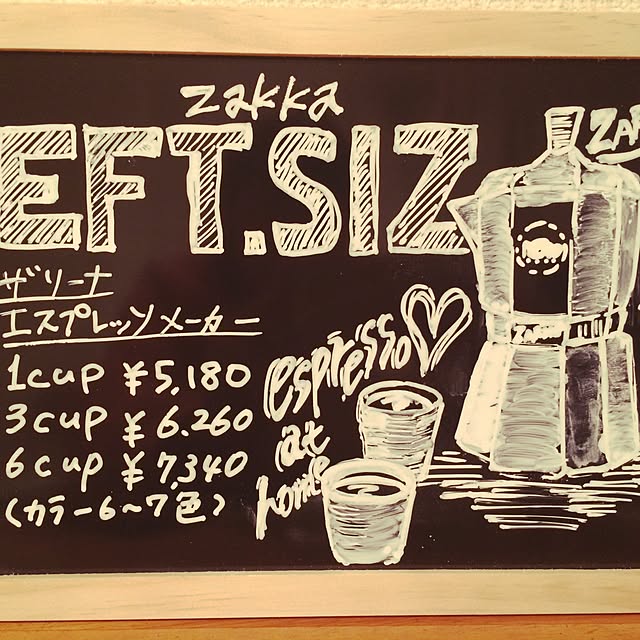 zakka
EFT.SIZ
ザリーナ
エスプレッソメーカー
1cup ¥5,180
3cup ¥6.260
6cup ¥7,340
(カラー6〜7色)
espresso
at
home